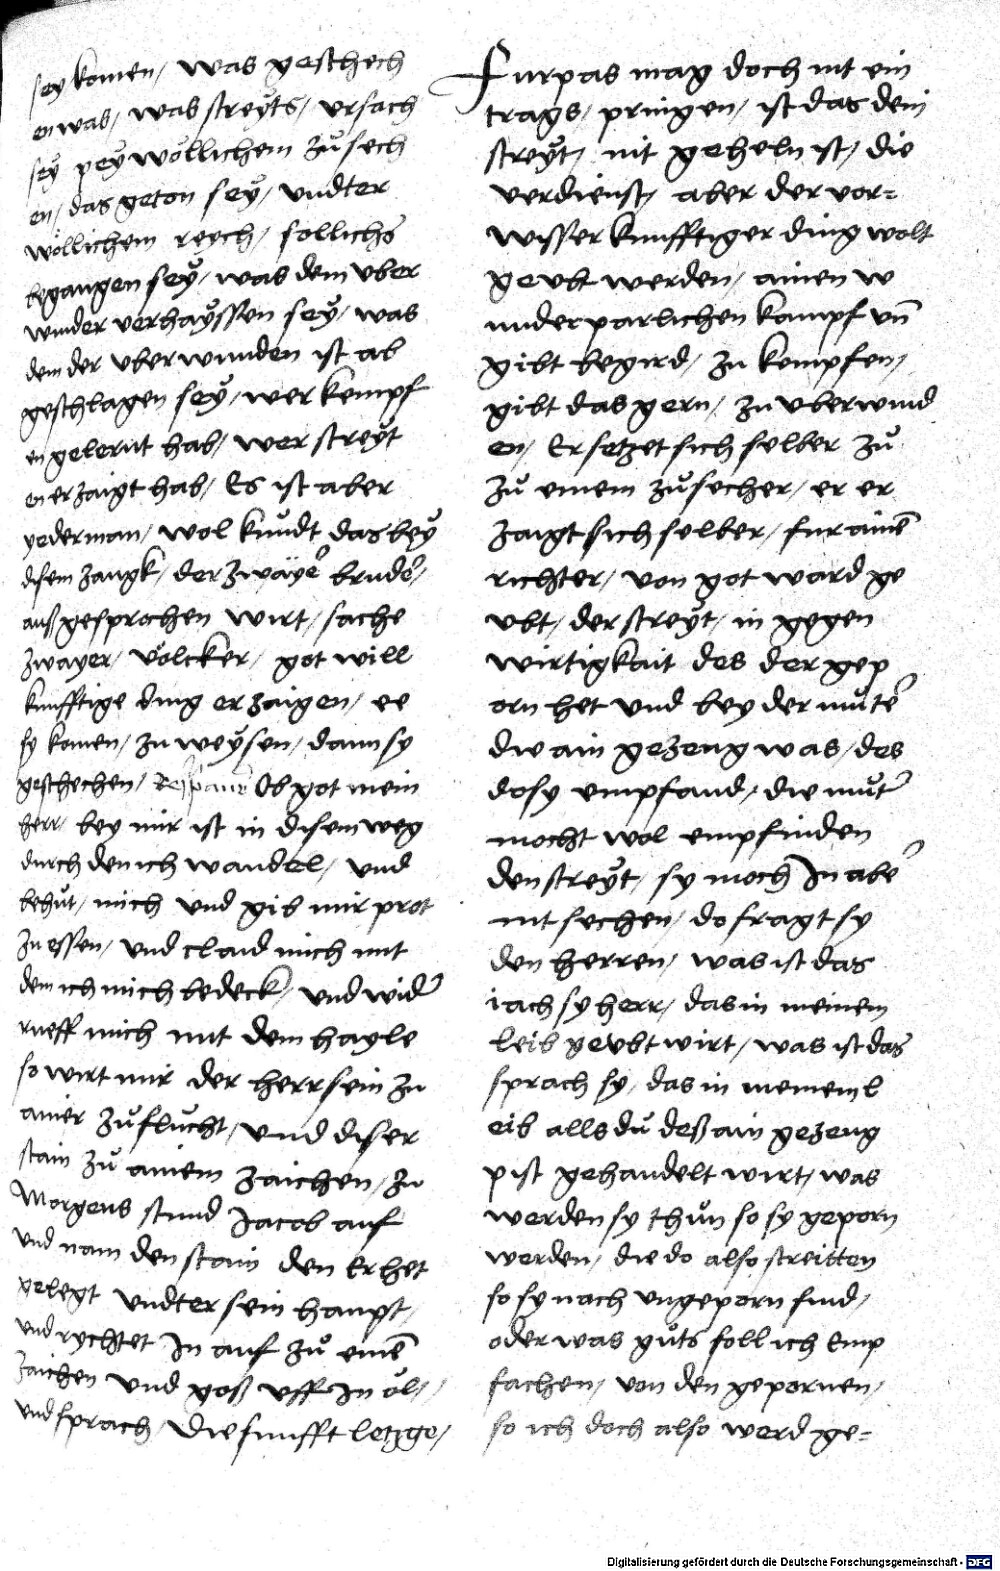 sey komen / was geschech
en was / was streyts / vrsach
sey pey wöllichem zůsech
en / das geton sey / vndter
wöllichem reych / sollichs
begangen sey / was dem vber
winder verhayssen sey / was
dem der vberwunden ist ab
geschlagen sey / wer kempf
en gelernt hab / wer streyt
en erzaigt hab / Es ist aber
yederman / wol kundt das bey
disem zangk / der zwaye brůde
auß gesprochen wirt / sache
zwayer / völcker / got will
kunfftige ding erzaigen / ee
sy komen / zu weysen / dann sy
geschechen / Ob got mein
herr / bey mir ist in disem weg
durch den ich wandel / vnd
behůt / mich vnd gib mir prot
zu essen / vnd claid mich mit
dem ich mich bedeck / vnd wider
rueff mich mit dem hayle
so wirt mir der herr sein zu
ainer zůflucht / vnd diser
stain zů ainem zaichen / zu
Morgens stund Jacob auf
vnd nam den stain den Er het
gelegt vndter sein haupt /
vnd rychtet In auf zů eine
zaichen vnd goß vff In öl /
vnd sprach / Die funfft letzge /
Furpas mag doch nit ein
trags / pringen / ist das dem
streyt / nit geheln ist / die
verdienst / aber der vor=
wisser kunfftiger ding wolt
gevbt werden / ainen w
underparlichen kampf vn
gibt begird / zu kempfen /
gibt das gern / zu vberwind
en / Er setzet sich selber zů
zů einem zůsecher / er er
zaigt sich selber / fur aine
richter / von got ward ge
vbt / der streyt / in gegen
wirtigkait des der gep
orn het vnd bey der můte
die ain gezeug was / des
do sy empfand / die můt
mocht wol empfinden
den streyt / sy moch In abe
nit sechen / do fragt sy
den herren / was ist das
iach sy herr / das in meinem
leib gevbt wirt / was ist das
sprach sy / das in meinem l
eib alls du deß ain gezeug
pist gehandelt wirt / was
werden sy thůn so sy geporn
werden / die do also streitten
so sy nach vngeporn sind /
oder was gůts soll ich Emp
fachen / von den gepornen /
so ich doch also werd ge=
Digitalisierung gefördert durch die Deutsche Forschungsgemeinschaft - DFG